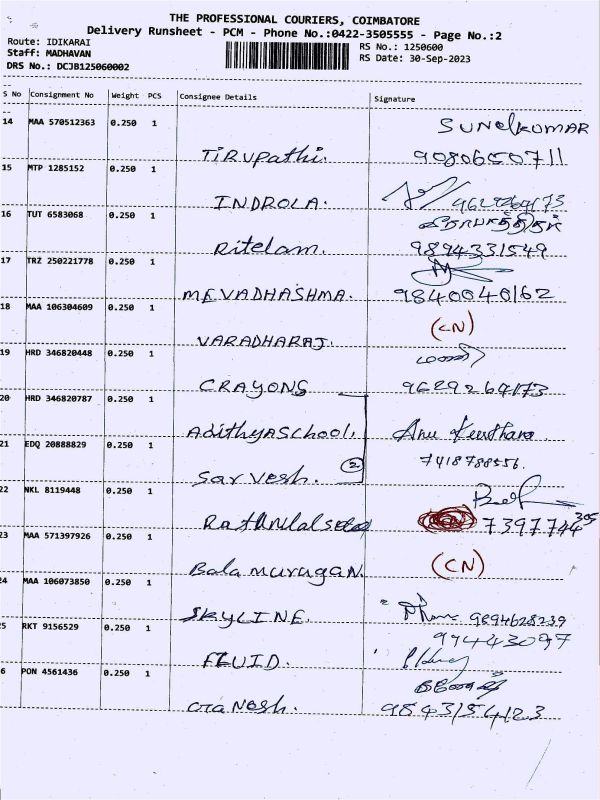 THE PROFESSIONAL COURIERS, COIMBATORE
Delivery Runsheet - PCM - Phone No.:0422-3505555 - Page No.:2
Route: IDIKARAI
Staff: MADHAVAN
DRS No.: DCJB125060002
RS No.: 1250600
RS Date: 30-Sep-2023
S No Consignment No Weight PCS Consignee Details Signature
14 MAA 570512363 0.250 1 SUNelKUMAR
TiRupathi. 9080650711
15 MTP 1285152 0.250 1
INDROLA. 9629269173
16 TUT 6583068 0.250 1
Ritelam. 9894331549
17 TRZ 250221778 0.250 1
MEVADHASHMA. 9840040162
18 MAA 106304609 0.250 1 (CN)
VARADHARAJ.
19 HRD 346820448 0.250 1
CRAYONS 9629269173
20 HRD 346820787 0.250 1
AdithyaSchool. Anu
21 EDQ 20888829 0.250 1 7418788556.
Sarvesh. (2)
22 NKL 8119448 0.250 1
7397744305
23 MAA 571397926 0.250 1
Bala murugan. (CN)
24 MAA 106073850 0.250 1
SKYLINE. 9894628239
25 RKT 9156529 0.250 1 994443097
FLUID.
26 PON 4561436 0.250 1
Ganesh. 9843154123